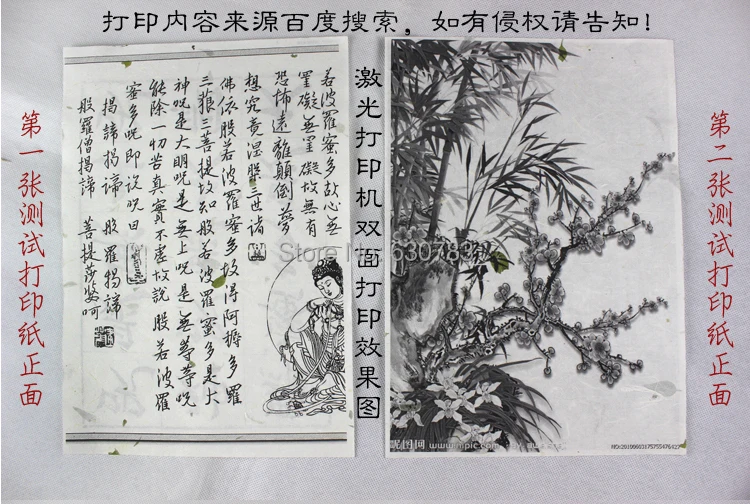 打印内容来源百度搜索，如有侵权请告知!
第一张测试打印纸正面
若波羅蜜多故心無
罣礙無罣礙故無有
恐怖遠離顛倒夢
想究竟涅槃三世諸
佛依般若波羅蜜多故得阿耨多羅
三藐三菩提故知般若波羅蜜多是大
神咒是大明咒是無上咒是無等等咒
能除一切苦真實不虛故說般若波羅
蜜多咒即說咒曰
揭諦揭諦 般羅揭諦
般羅僧揭諦 菩提薩婆呵
激光打印机双面打印效果图
第二张测试打印纸正面
Store No: 630783
昵图网 www.nipic.com